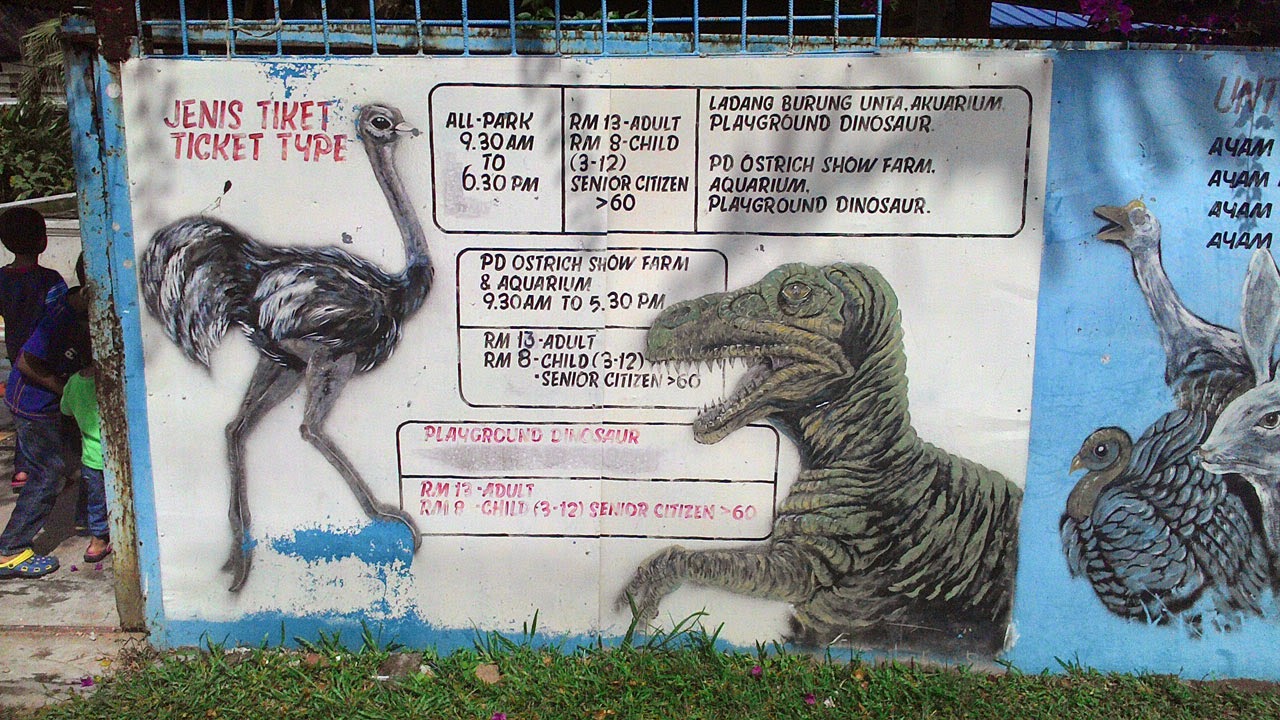 JENIS TIKET
TICKET TYPE
ALL-PARK
9.30 AM
TO
6.30 PM
RM 13-ADULT
RM 8-CHILD
(3-12)
SENIOR CITIZEN
>60
LADANG BURUNG UNTA, AKUARIUM,
PLAYGROUND DINOSAUR.
PD OSTRICH SHOW FARM.
AQUARIUM,
PLAYGROUND DINOSAUR.
PD OSTRICH SHOW FARM
& AQUARIUM
9.30 AM TO 5.30 PM
RM 13-ADULT
RM 8-CHILD (3-12)
·SENIOR CITIZEN >60
PLAYGROUND DINOSAUR
RM 13-ADULT
RM 8 -CHILD (3-12) SENIOR CITIZEN >60
AYAM
AYAM
AYAM
AYAM